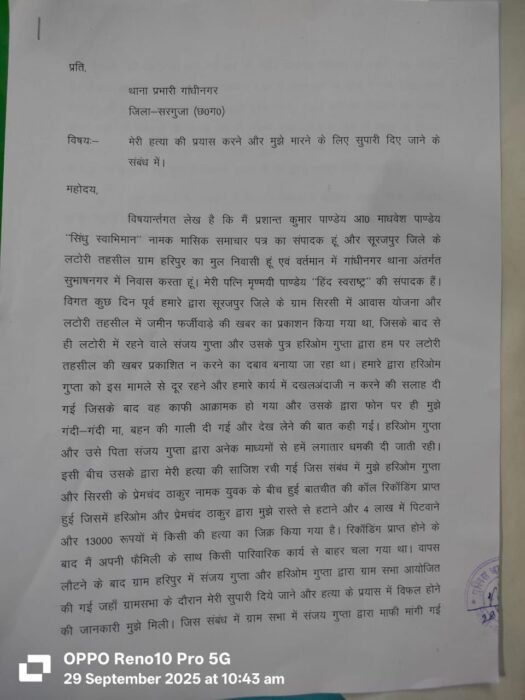 प्रति,
थाना प्रभारी गांधीनगर
जिला–सरगुजा (छ0ग0)
विषयः– मेरी हत्या की प्रयास करने और मुझे मारने के लिए सुपारी दिए जाने के
संबंध में।
महोदय,
विषयार्न्तगत लेख है कि मैं प्रशान्त कुमार पाण्डेय आ0 माधवेश पाण्डेय
"सिंधु स्वाभिमान" नामक मासिक समाचार पत्र का संपादक हूं और सूरजपुर जिले के
लटोरी तहसील ग्राम हरिपुर का मुल निवासी हूं एवं वर्तमान में गांधीनगर थाना अंतर्गत
सुभाषनगर में निवास करता हूं। मेरी पत्नि मृण्मयी पाण्डेय "हिंद स्वराष्ट्र" की संपादक हैं।
विगत कुछ दिन पूर्व हमारे द्वारा सूरजपुर जिले के ग्राम सिरसी में आवास योजना और
लटोरी तहसील में जमीन फर्जीवाड़े की खबर का प्रकाशन किया गया था, जिसके बाद से
ही लटोरी में रहने वाले संजय गुप्ता और उसके पुत्र हरिओम गुप्ता द्वारा हम पर लटोरी
तहसील की खबर प्रकाशित न करने का दबाव बनाया जा रहा था। हमारे द्वारा हरिओम
गुप्ता को इस मामले से दूर रहने और हमारे कार्य में दखलअंदाजी न करने की सलाह दी
गई जिसके बाद वह काफी आक्रामक हो गया और उसके द्वारा फोन पर ही मुझे
गंदी–गंदी मा, बहन की गाली दी गई और देख लेने की बात कही गई। हरिओम गुप्ता
और उसे पिता संजय गुप्ता द्वारा अनेक माध्यमों से हमें लगातार धमकी दी जाती रही।
इसी बीच उसके द्वारा मेरी हत्या की साजिश रची गई जिस संबंध में मुझे हरिओम गुप्ता
और सिरसी के प्रेमचंद ठाकुर नामक युवक के बीच हुई बातचीत की कॉल रिकॉर्डिंग प्राप्त
हुई जिसमें हरिओम और प्रेमचंद ठाकुर द्वारा मुझे रास्ते से हटाने और 4 लाख में पिटवाने
और 13000 रूपयों में किसी की हत्या का जिक्र किया गया है। रिकॉर्डिंग प्राप्त होने के
बाद मैं अपनी फैमिली के साथ किसी पारिवारिक कार्य से बाहर चला गया था। वापस
लौटने के बाद ग्राम हरिपुर में संजय गुप्ता और हरिओम गुप्ता द्वारा ग्राम सभा आयोजित
की गई जहाँ ग्रामसभा के दौरान मेरी सुपारी दिये जाने और हत्या के प्रयास में विफल होने
की जानकारी मुझे मिली। जिस संबंध में ग्राम सभा में संजय गुप्ता द्वारा माफी मांगी गई
OPPO Reno10 Pro 5G
29 September 2025 at 10:43 am